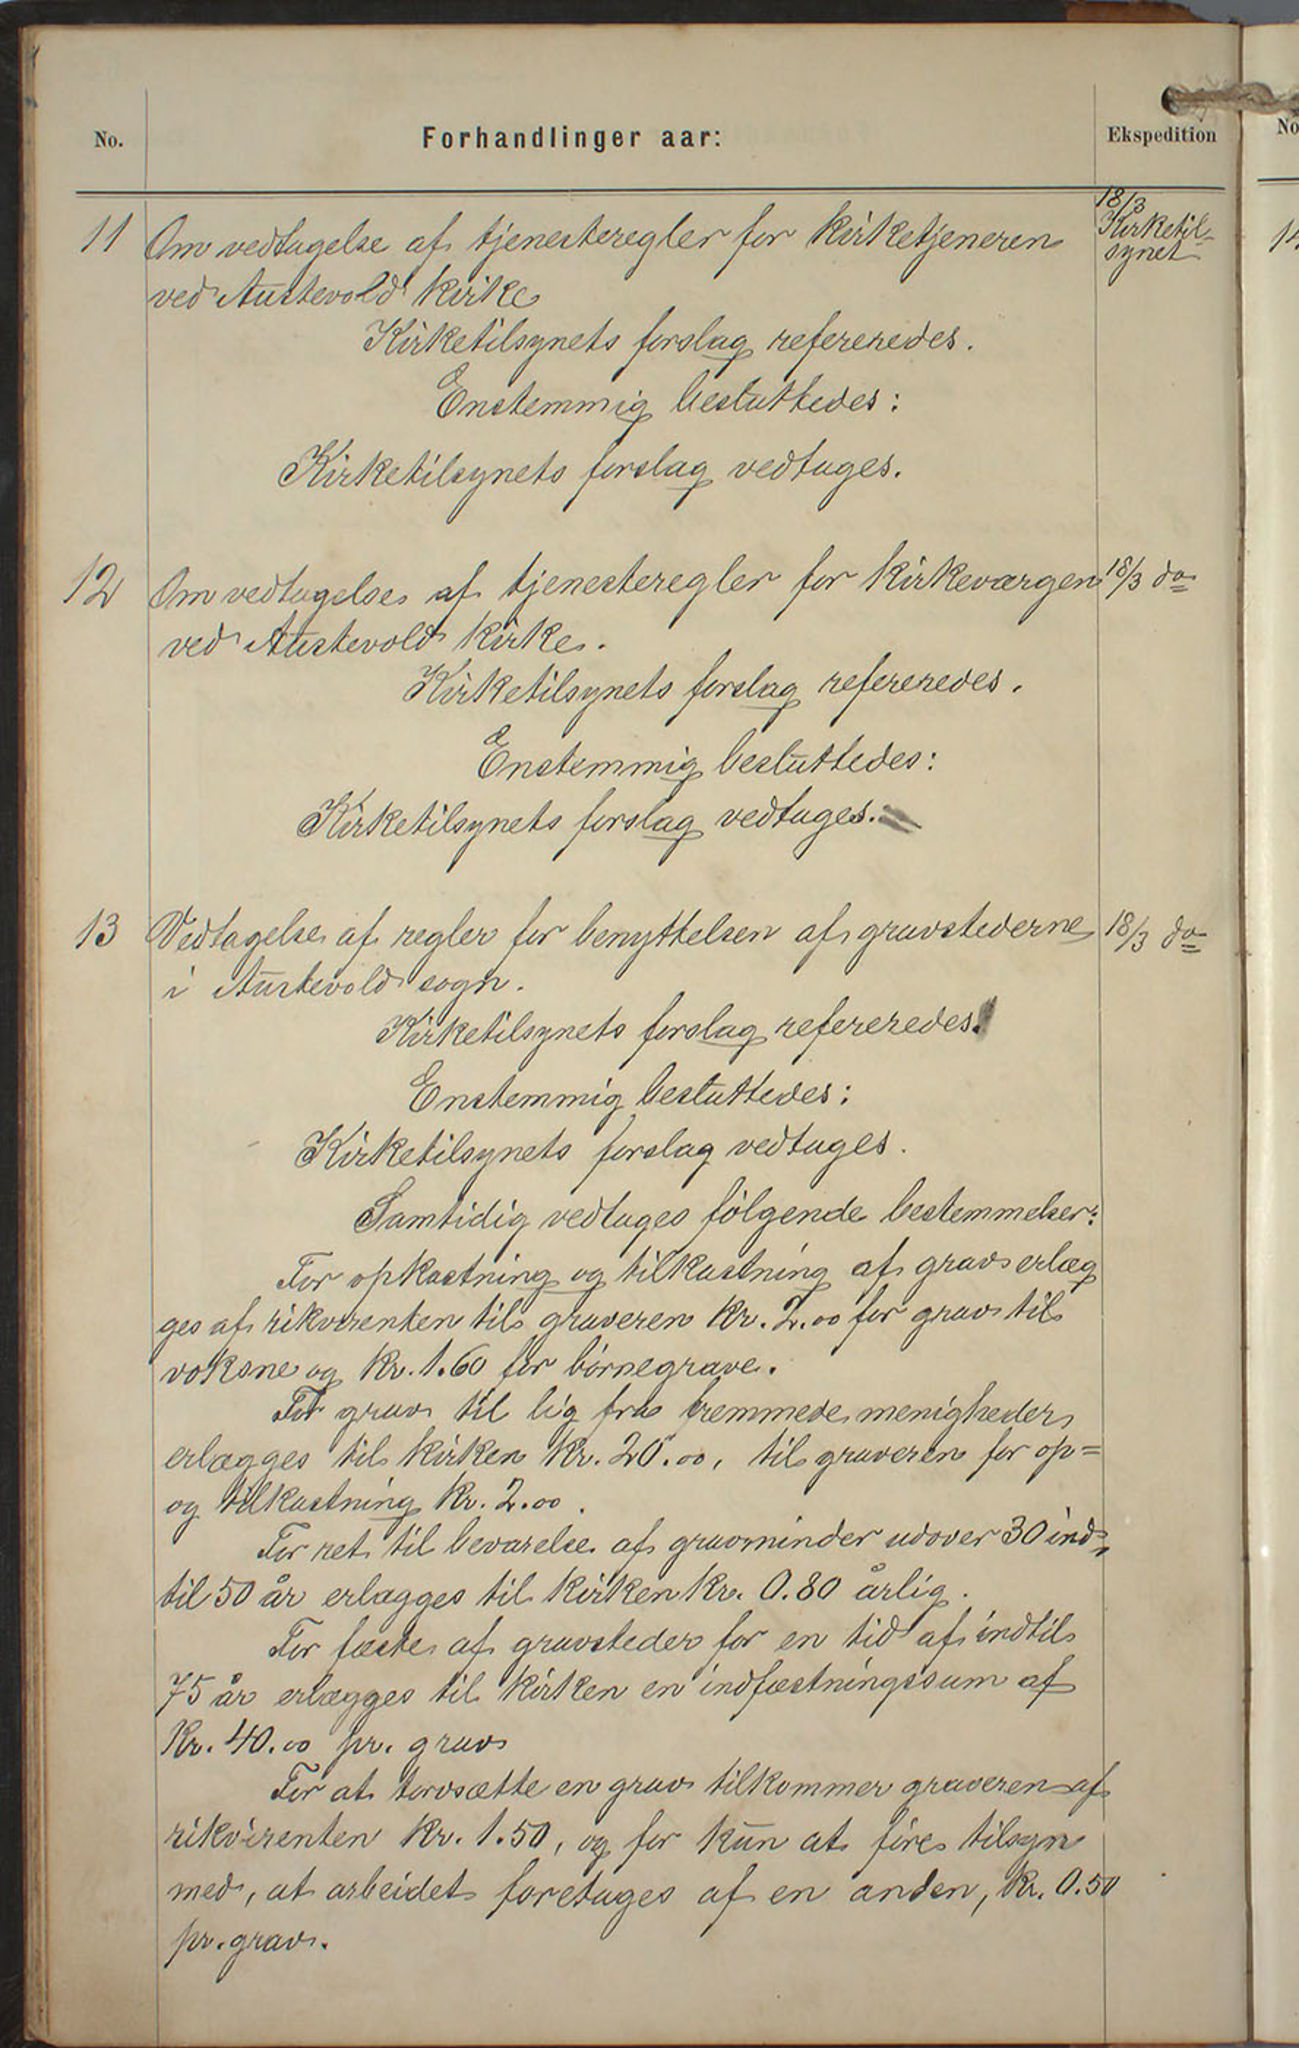 No.
Forhandlinger aar:
Ekspedition
No
11
Om vedtagelse af tjenesteregler for kirketjeneren
ved Austevold kirke
18/3
Kirketil-
synet
Kirketilsynets forslag refereredes.
Enstemmig besluttedes:
Kirketilsynets forslag vedtages.
12
Om vedtagelse af tjenesteregler for kirkeværgen
18/3 do
ved Austevold kirke.
Kirketilsynets forslag refereredes.
Enstemmig besluttedes:
Kirketilsynets forslag vedtages.
13
Vedtagelse af regler for benyttelsen af gravstederne
18/3 do
i Austevold sogn.
Kirketilsynets forslag refereredes.
Enstemmig besluttedes:
Kirketilsynets forslag vedtages.
Samtidig vedtages følgende bestemmelser:
For opkastning og tilkastning af grav erlæg
ges af rikvirenten til graveren kr. 2.00 for grav til
voksne og kr. 1.60 for børnegrave.
For grav til lig fra fremmede menigheder
erlægges til kirken kr. 20.00, til graveren for op=
og tilkastning kr. 2.00.
For ret til bevarelse af gravminder udover 30 ind-
til 50 år erlægges til kirken kr. 0.80 årlig.
For fæste af gravsteder for en tid af indtil
75 år erlægges til kirken en indfæstningssum af
kr. 40.00 pr. grav
For at torvsætte en grav tilkommer graveren af
rikvirenten kr. 1.50, og for kun at føre tilsyn
med, at arbeidet foretages af en anden, kr. 0.50
pr. grav.